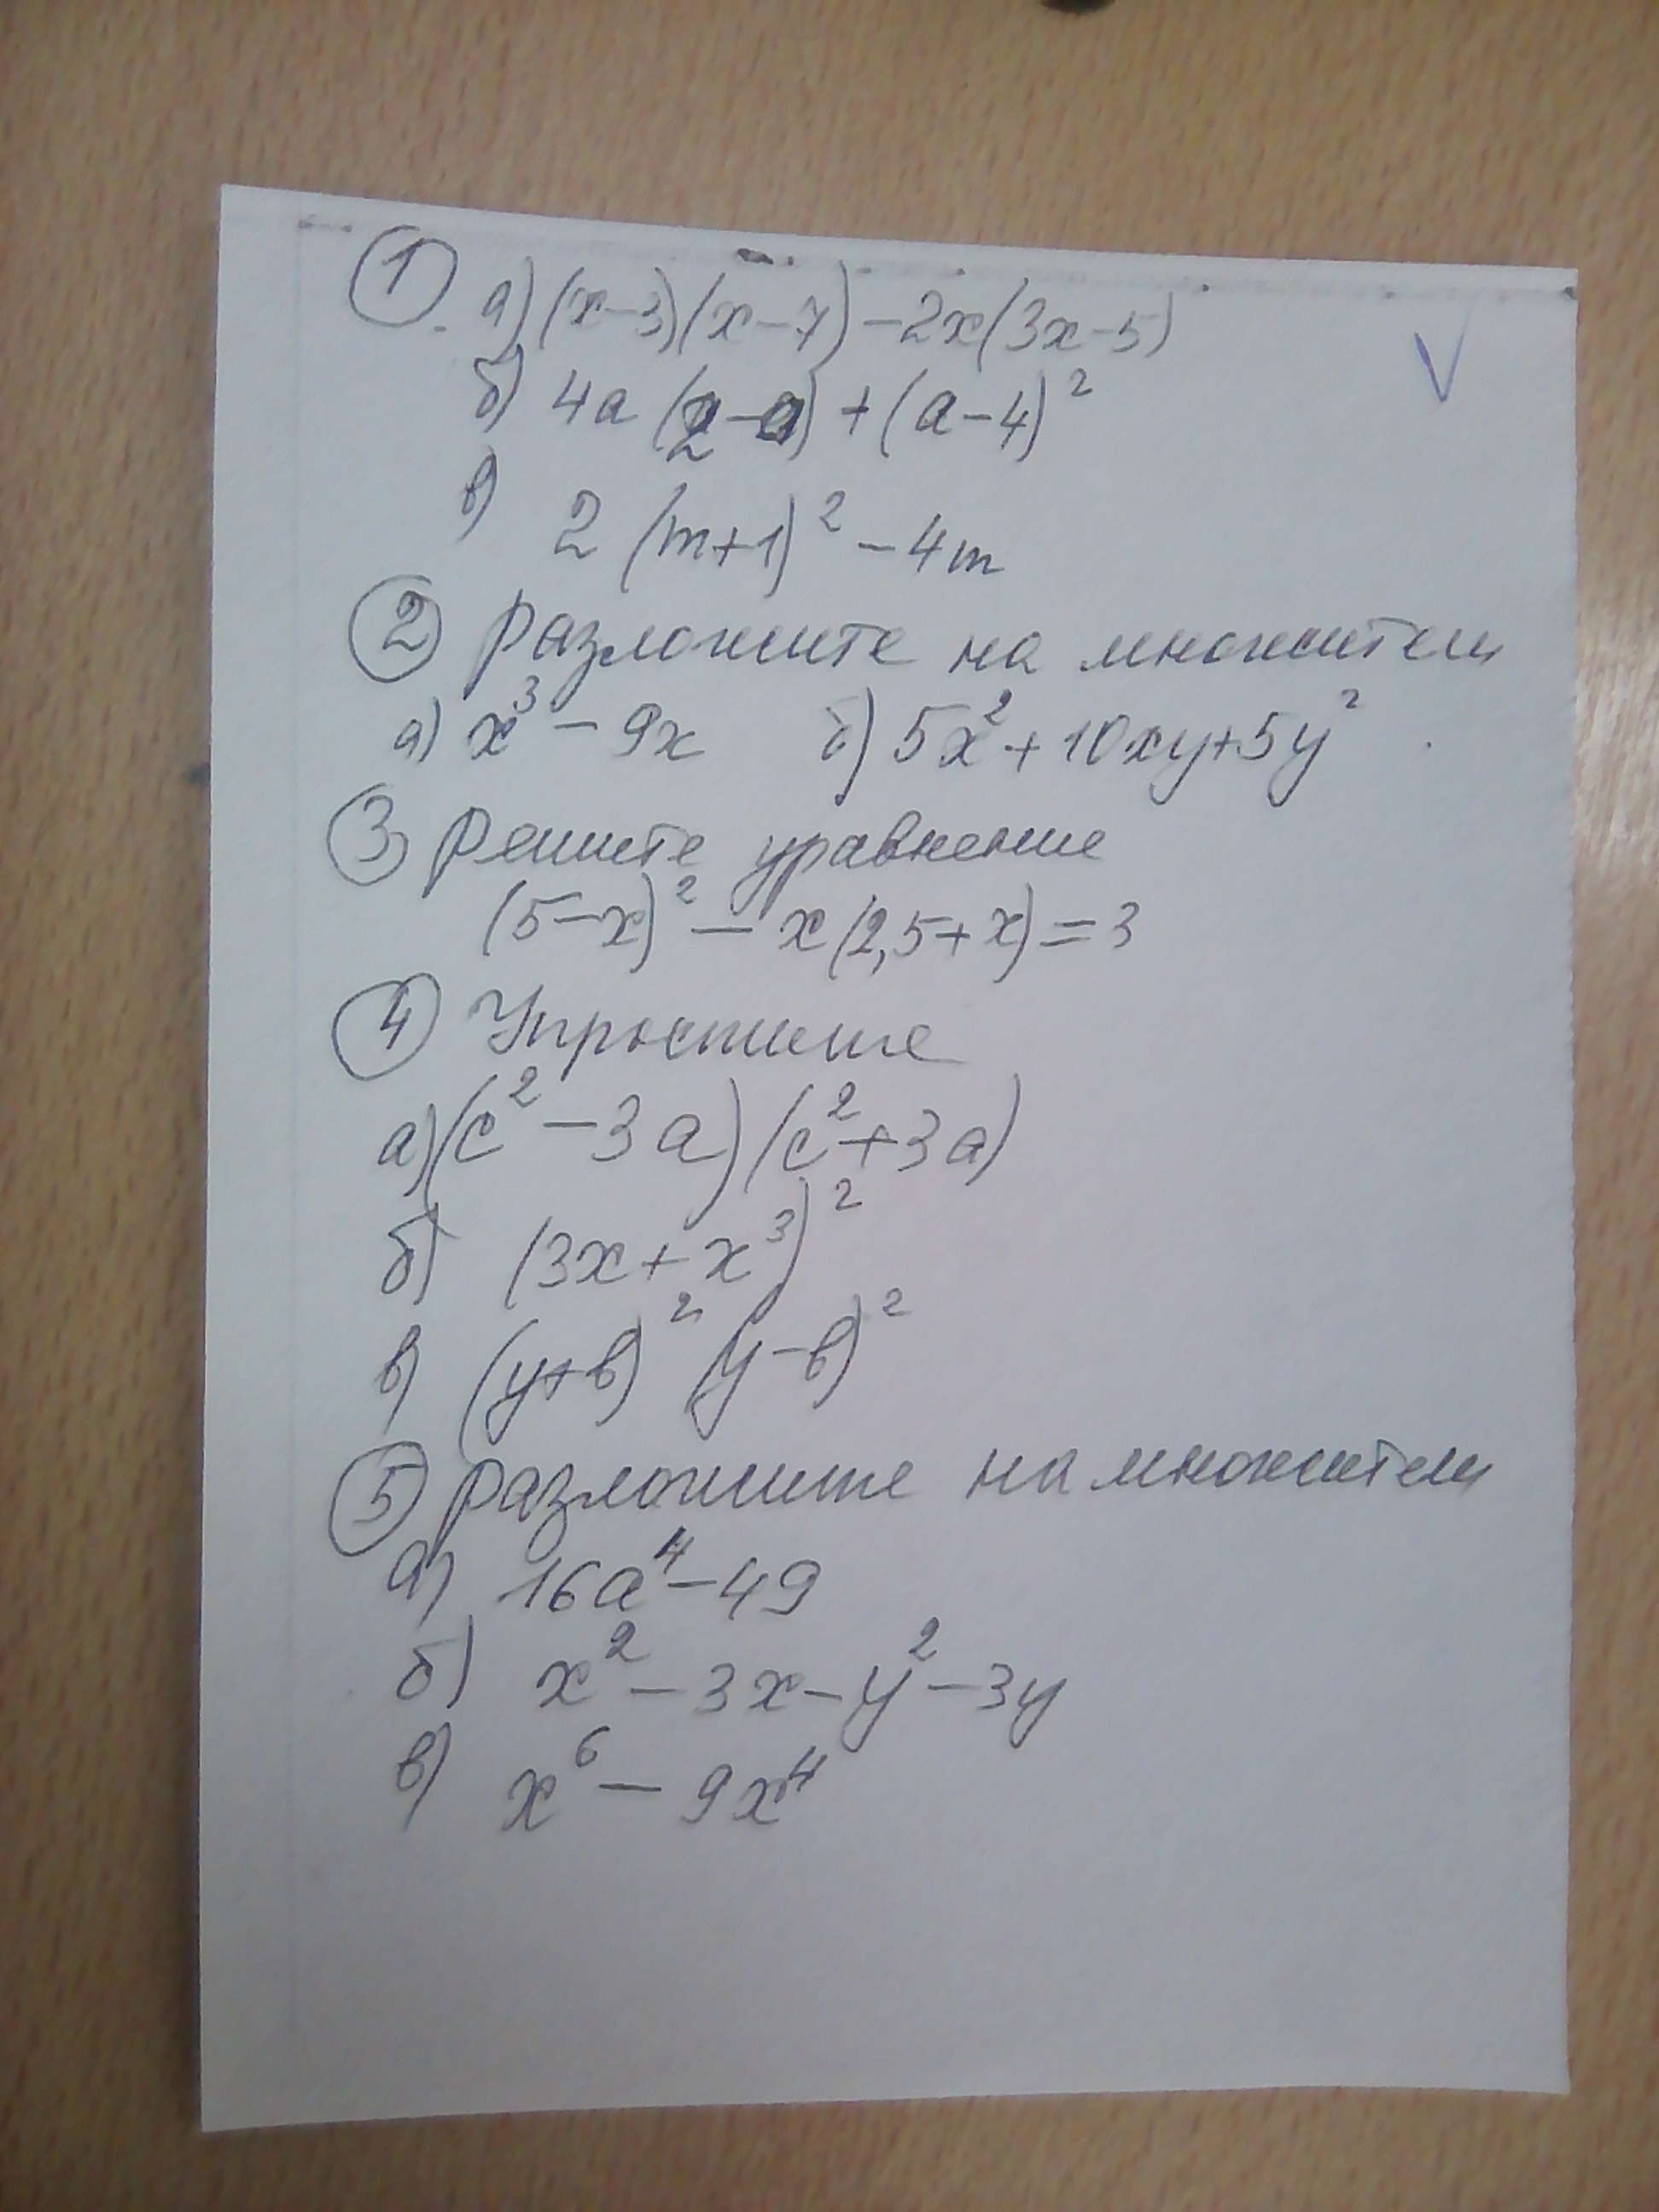 ① а) (x-3)(x-7)-2x(3x-5)
V
б) 4a(2-a)+(a-4)²
в) 2(m+1)²-4m
② Разложите на множители
а) x³-9x б) 5x²+10xy+5y²
③ Решите уравнение
(5-x)²-x(2,5+x)=3
④ Упростите
а) (c²-3a)(c²+3a)
б) (3x+x³)²
в) (y+b)² (y-b)²
⑤ Разложите на множители
а) 16a⁴-49
б) x²-3x-y²-3y
в) x⁶-9x⁴